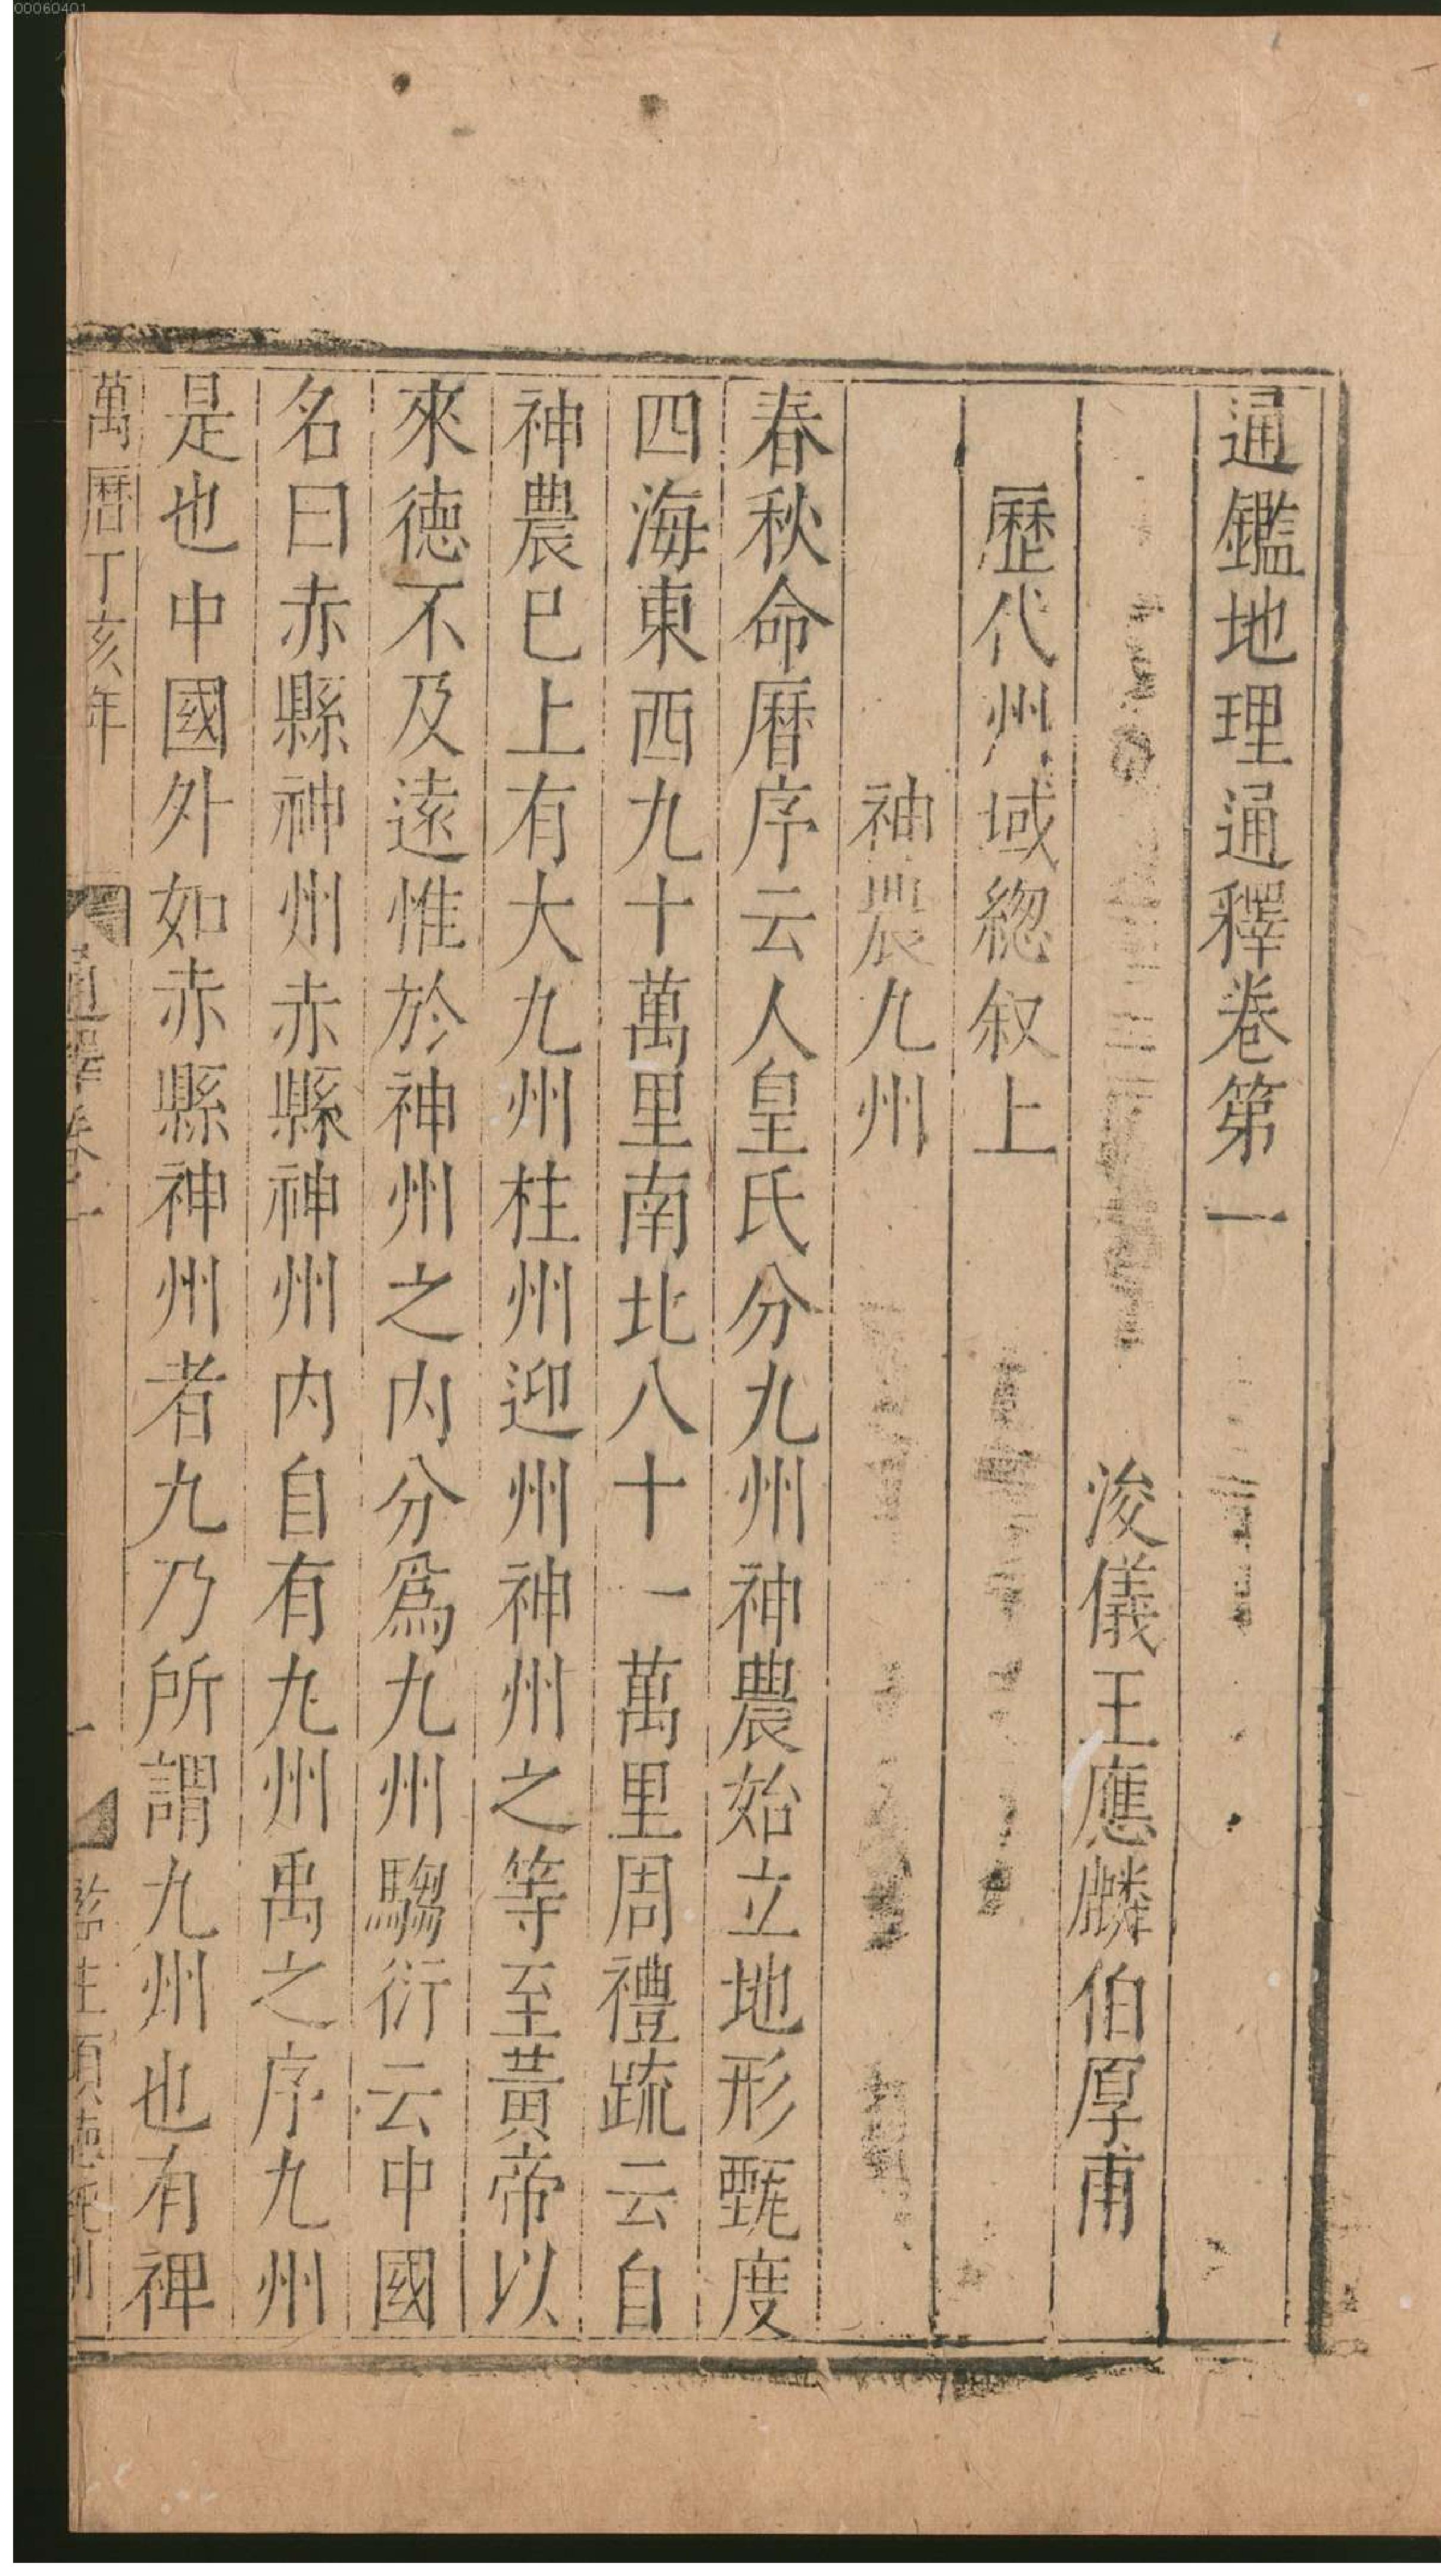 00060401
通鑑地理通釋卷第一
浚儀王應麟伯厚甫
歷代州域緫叙上
神農九州
春秋命曆序云人皇氏分九州神農始立地形甄度
四海東西九十萬里南北八十一萬里周禮䟽云自
神農已上有大九州柱州迎州神州之等至黃帝以
來德不及遠惟於神州之內分爲九州騶衍云中國
名曰赤縣神州赤縣神州內自有九州禹之序九州
是也中國外如赤縣神州者九乃所謂九州也有裨
萬曆丁亥年
通釋卷一
一
監生
刊